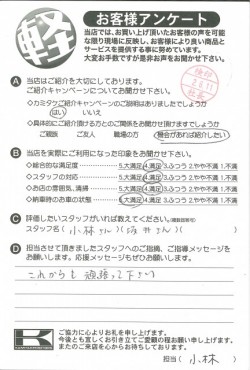 軽
お客様アンケート
当店では、お買い上げ頂いたお客様の声を可能
な限り現場に反映し、お客様により良い商品と
サービスを提供する事に努めています。
大変お手数ですが是非お声をお聞かせ下さい。
A 当店はご紹介を大切にしております。
ご紹介キャンペーンについてお聞かせ下さい。
◇カミタケご紹介キャンペーンのご説明はありましたでしょうか
はい いいえ
◇具体的にご紹介頂ける方とのご関係をお聞かせ頂けますでしょうか
ご親戚 ご友人 職場の方 機会があれば紹介したい
B 当店を実際にご利用になった印象をお聞かせ下さい。
◇総合的な満足度 5.大満足 4.満足 3.ふつう 2.やや不満 1.不満
◇スタッフの対応 5.大満足 4.満足 3.ふつう 2.やや不満 1.不満
◇お店の雰囲気、清掃 5.大満足 4.満足 3.ふつう 2.やや不満 1.不満
◇納車時のお車の状態 5.大満足 4.満足 3.ふつう 2.やや不満 1.不満
C 評価したいスタッフがいれば教えてください。(複数回答可)
スタッフ名( 小林さん )( 坂井さん )( )
D 担当させて頂きましたスタッフへのご指摘、ご指導メッセージを
お願いします。応援メッセージもぜひお願いします。
これからも頑張って下さい
K
ご協力に心よりお礼を申し上げます。
今後とも宜しくお引き立てご愛顧の程お願い申し上げます。
またのご来店を心からお待ちしております。
担当( 小林 )